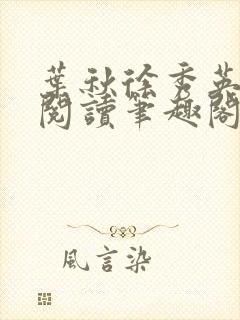 葉秋徐秀英
閱讀筆趣閣
風言染